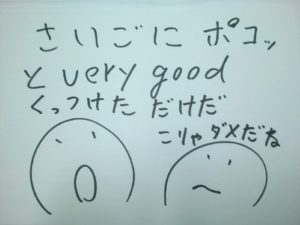 さいごに ポコッ
と very good
くっつけた だけだ
こりゃダメだね